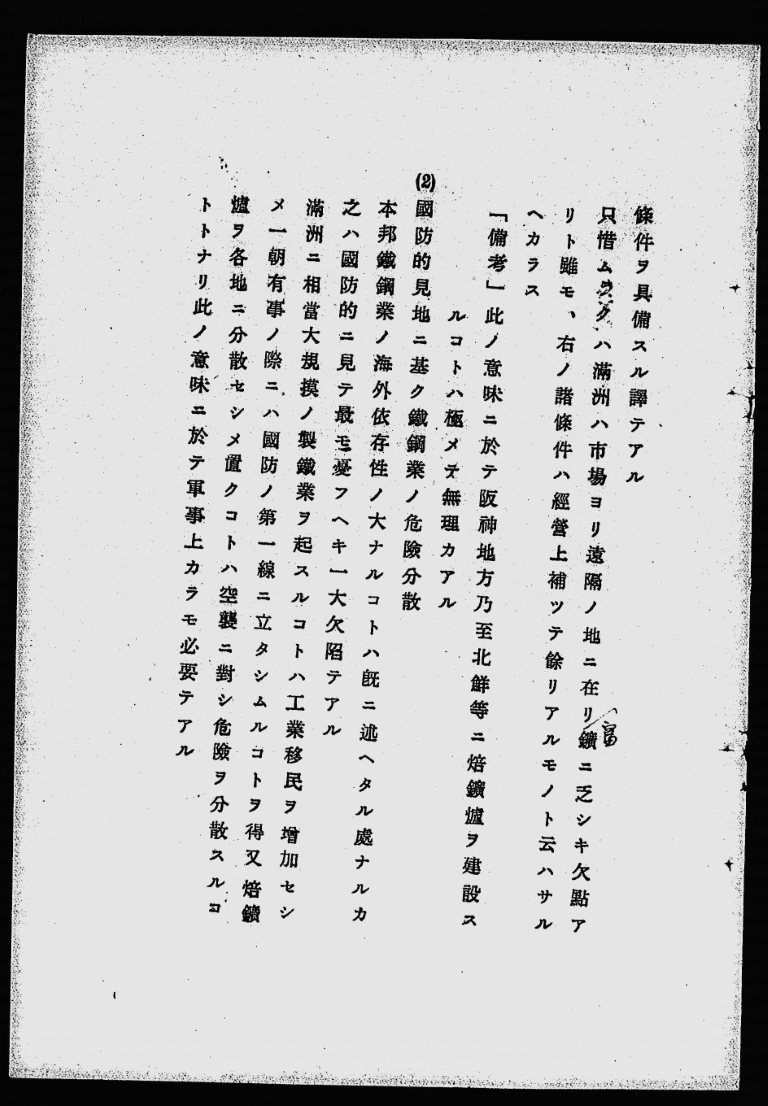 條件ヲ具備スル譯テアル
只惜ムラクハ滿洲ハ市場ヨリ遠隔ノ地ニ在リ富鑛ニ乏シキ欠點ア
リト雖モ、右ノ諸條件ハ經營上補ツテ餘リアルモノト云ハサル
ヘカラス
「備考」此ノ意味ニ於テ阪神地方乃至北鮮等ニ焙鑛爐ヲ建設ス
ルコトハ極メテ無理カアル
(2)國防的見地ニ基ク鐵鋼業ノ危險分散
本邦鐵鋼業ノ海外依存性ノ大ナルコトハ旣ニ述ヘタル處ナルカ
之ハ國防的ニ見テ最モ憂フヘキ一大欠陷テアル
滿洲ニ相當大規摸ノ製鐵業ヲ起スルコトハ工業移民ヲ增加セシ
メ一朝有事ノ際ニハ國防ノ第一線ニ立タシムルコトヲ得又焙鑛
爐ヲ各地ニ分散セシメ置クコトハ空襲ニ對シ危險ヲ分散スルコ
トトナリ此ノ意味ニ於テ軍事上カラモ必要テアル